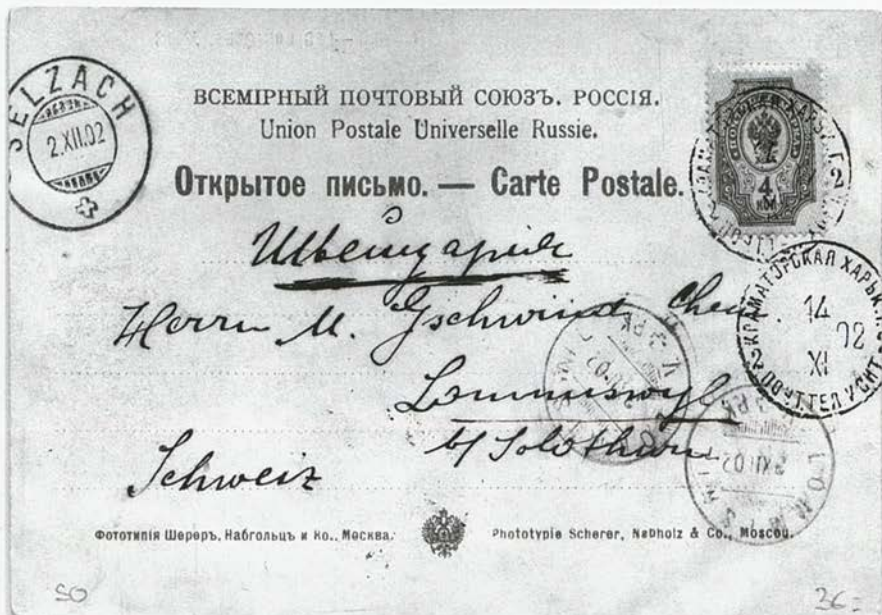 SELZACH
2.XII.02
ВСЕМІРНЫЙ ПОЧТОВЫЙ СОЮЗЪ. РОССІЯ.
Union Postale Universelle Russie.
Открытое письмо. — Carte Postale.
4
КОП
Швейцарія
КРАМАТОРСКАЯ ХАРЬК. Г.
14
XI
02
2
Herrn M. Gschwind Chem.
Lommiswyl
b/ Solothurn
Schweiz
XII 02
Фототипія Шереръ, Набгольцъ и Ко., Москва.
Phototypie Scherer, Nabholz & Co., Moscou.
50
36=